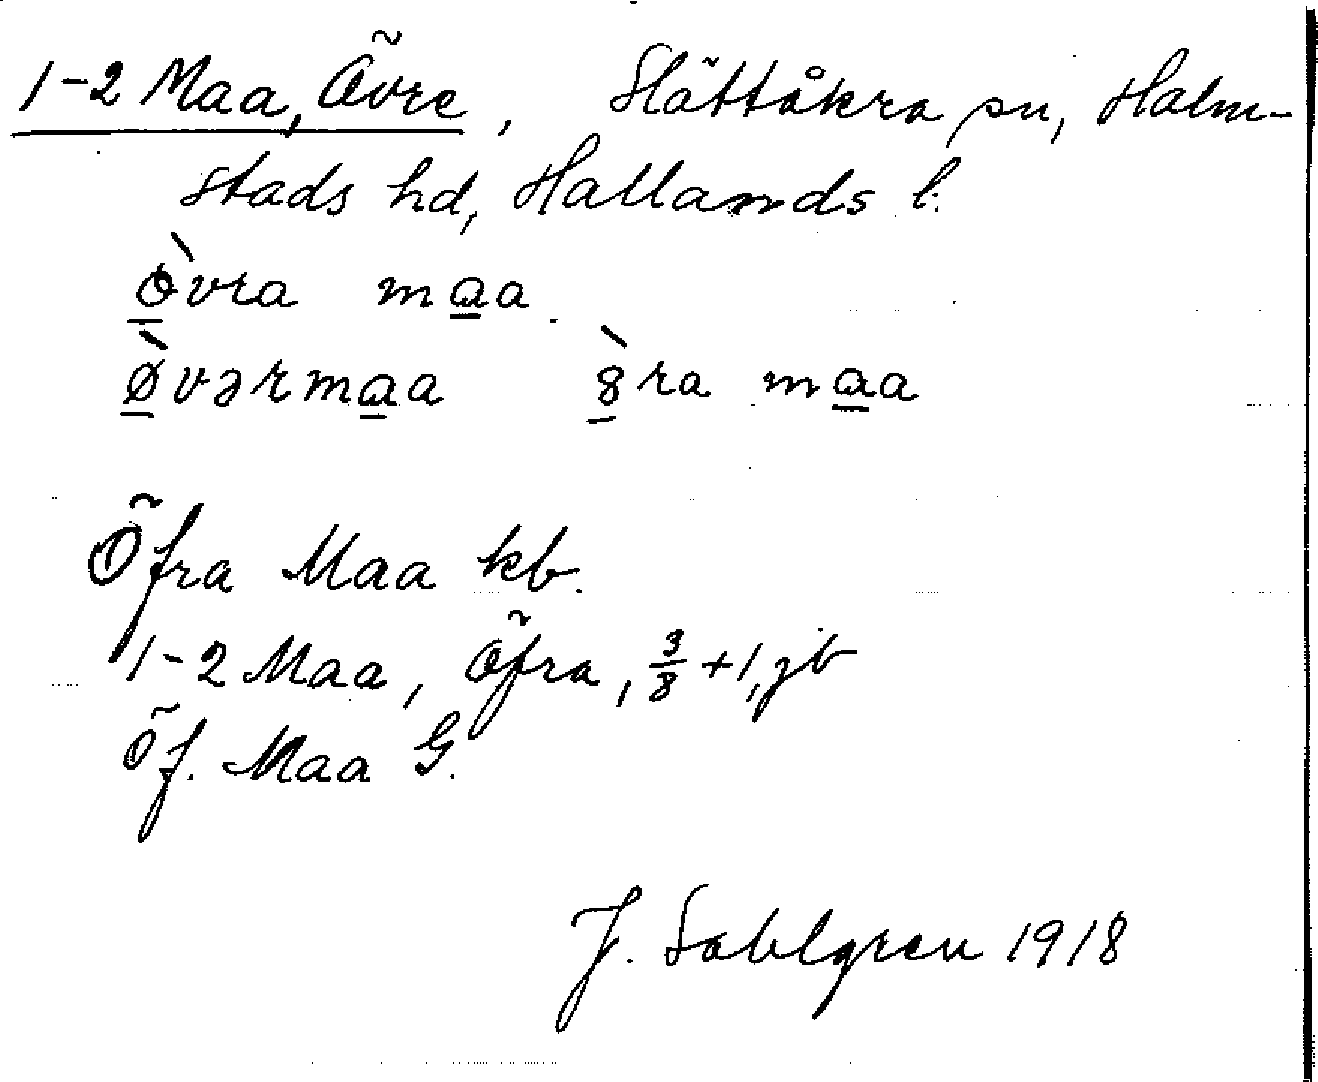 1-2 Maa, Övre, Slättåkra sn, Halm-
stads hd, Hallands l.
òvra maa.
øvərmaa 8ra maa
Öfra Maa kb.
1-2 Maa, Öfra, 3/8 + 1, jb
Öf. Maa G.
J. Sahlgren 1918